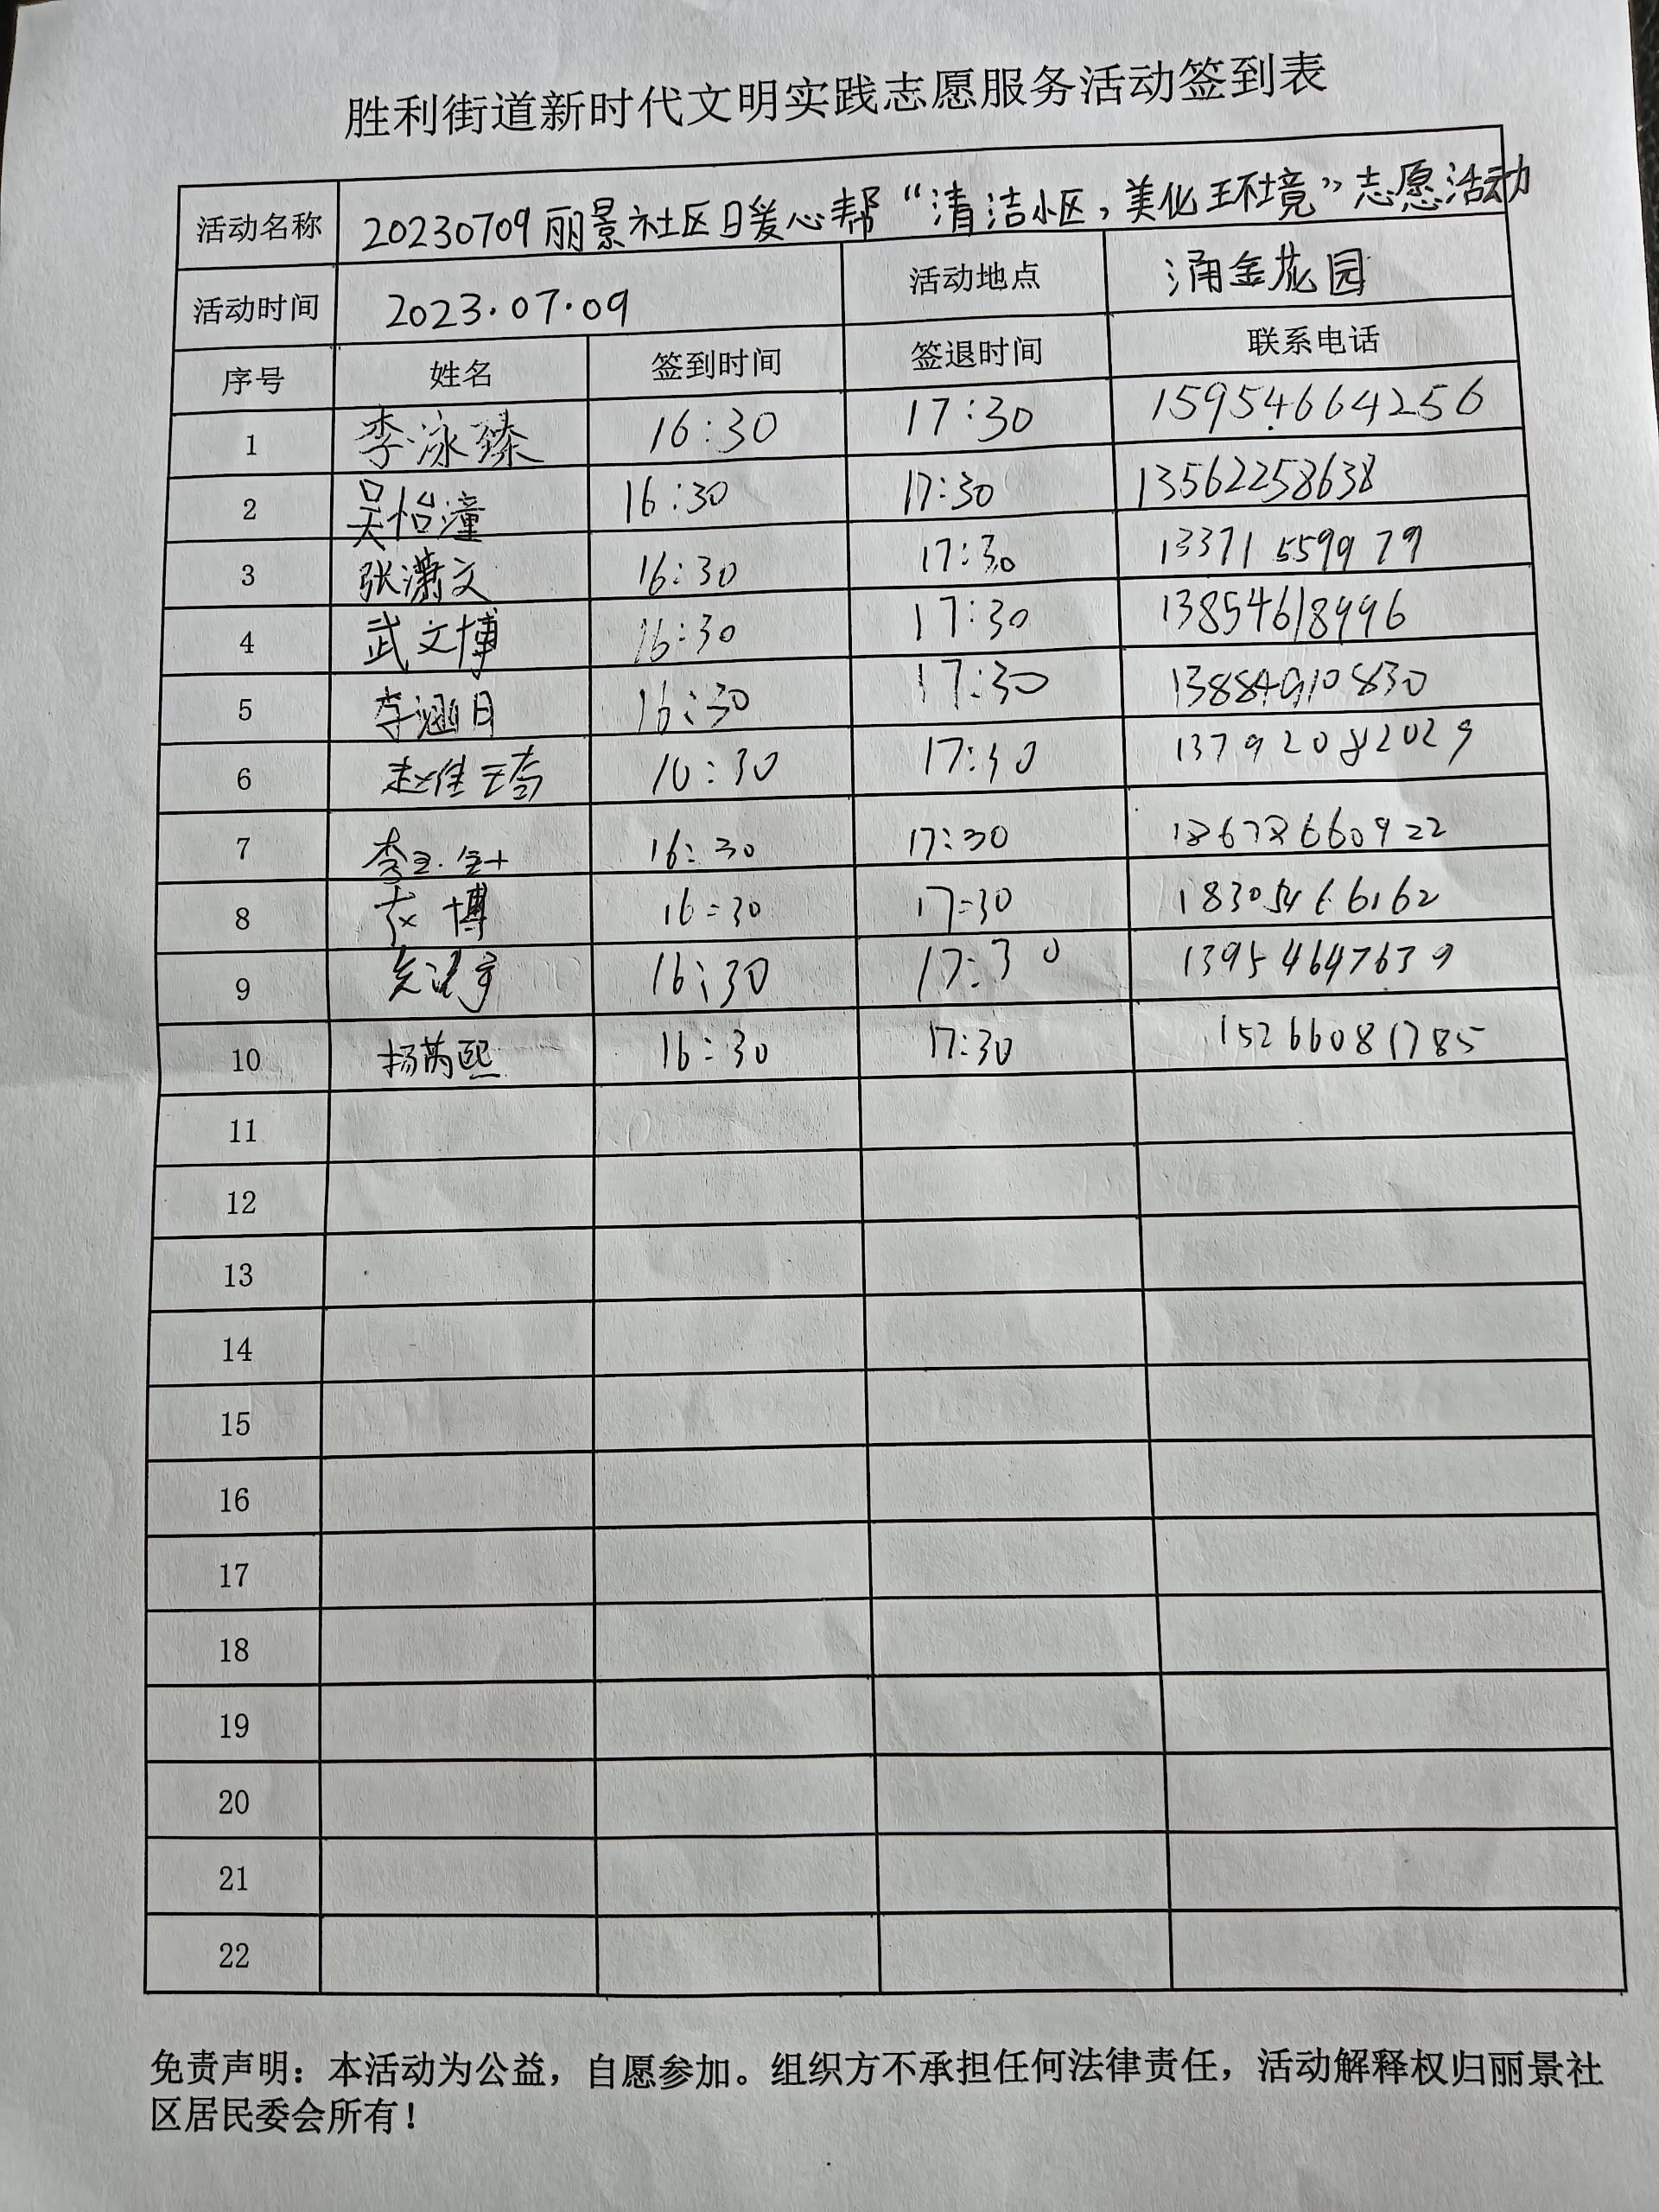 胜利街道新时代文明实践志愿服务活动签到表
活动名称 20230709丽景社区日爱心帮“清洁小区,美化环境”志愿活动
活动时间 2023.07.09 活动地点 涌金花园
序号 姓名 签到时间 签退时间 联系电话
1 李泳臻 16:30 17:30 15954664256
2 吴怡潼 16:30 17:30 13562258638
3 张潇文 16:30 17:30 13371559979
4 武文博 16:30 17:30 13854618996
5 李涵月 16:30 17:30 13884910830
6 赵佳琦 16:30 17:30 13792082029
7 16:30 17:30
8 16:30 17:30 18305466162
9 16:30 17:30 13954647639
10 杨芮熙 16:30 17:30 15266081785
11
12
13
14
15
16
17
18
19
20
21
22
免责声明：本活动为公益，自愿参加。组织方不承担任何法律责任，活动解释权归丽景社
区居民委会所有！